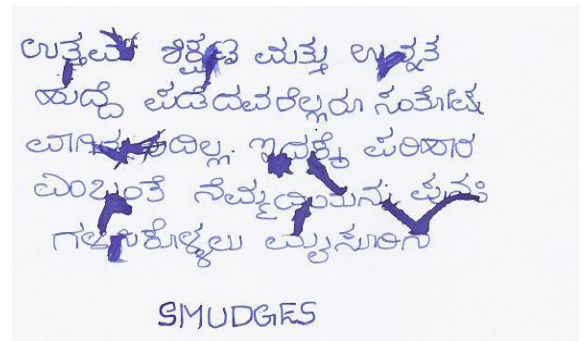 ಉತ್ತಮ ಶಿಕ್ಷಣ ಮತ್ತು ಉನ್ನತ
ಹುದ್ದೆ ಪಡೆದವರೆಲ್ಲರೂ ಸಂತೋಷ
ವಾಗಿರುವುದಿಲ್ಲ. ಇದಕ್ಕೆ ಪರಿಹಾರ
ಎಂಬಂತೆ ನೆಮ್ಮದಿಯನ್ನು ಪುನಃ
ಗಳಿಸಿಕೊಳ್ಳಲು ಮೈಸೂರಿನ
SMUDGES